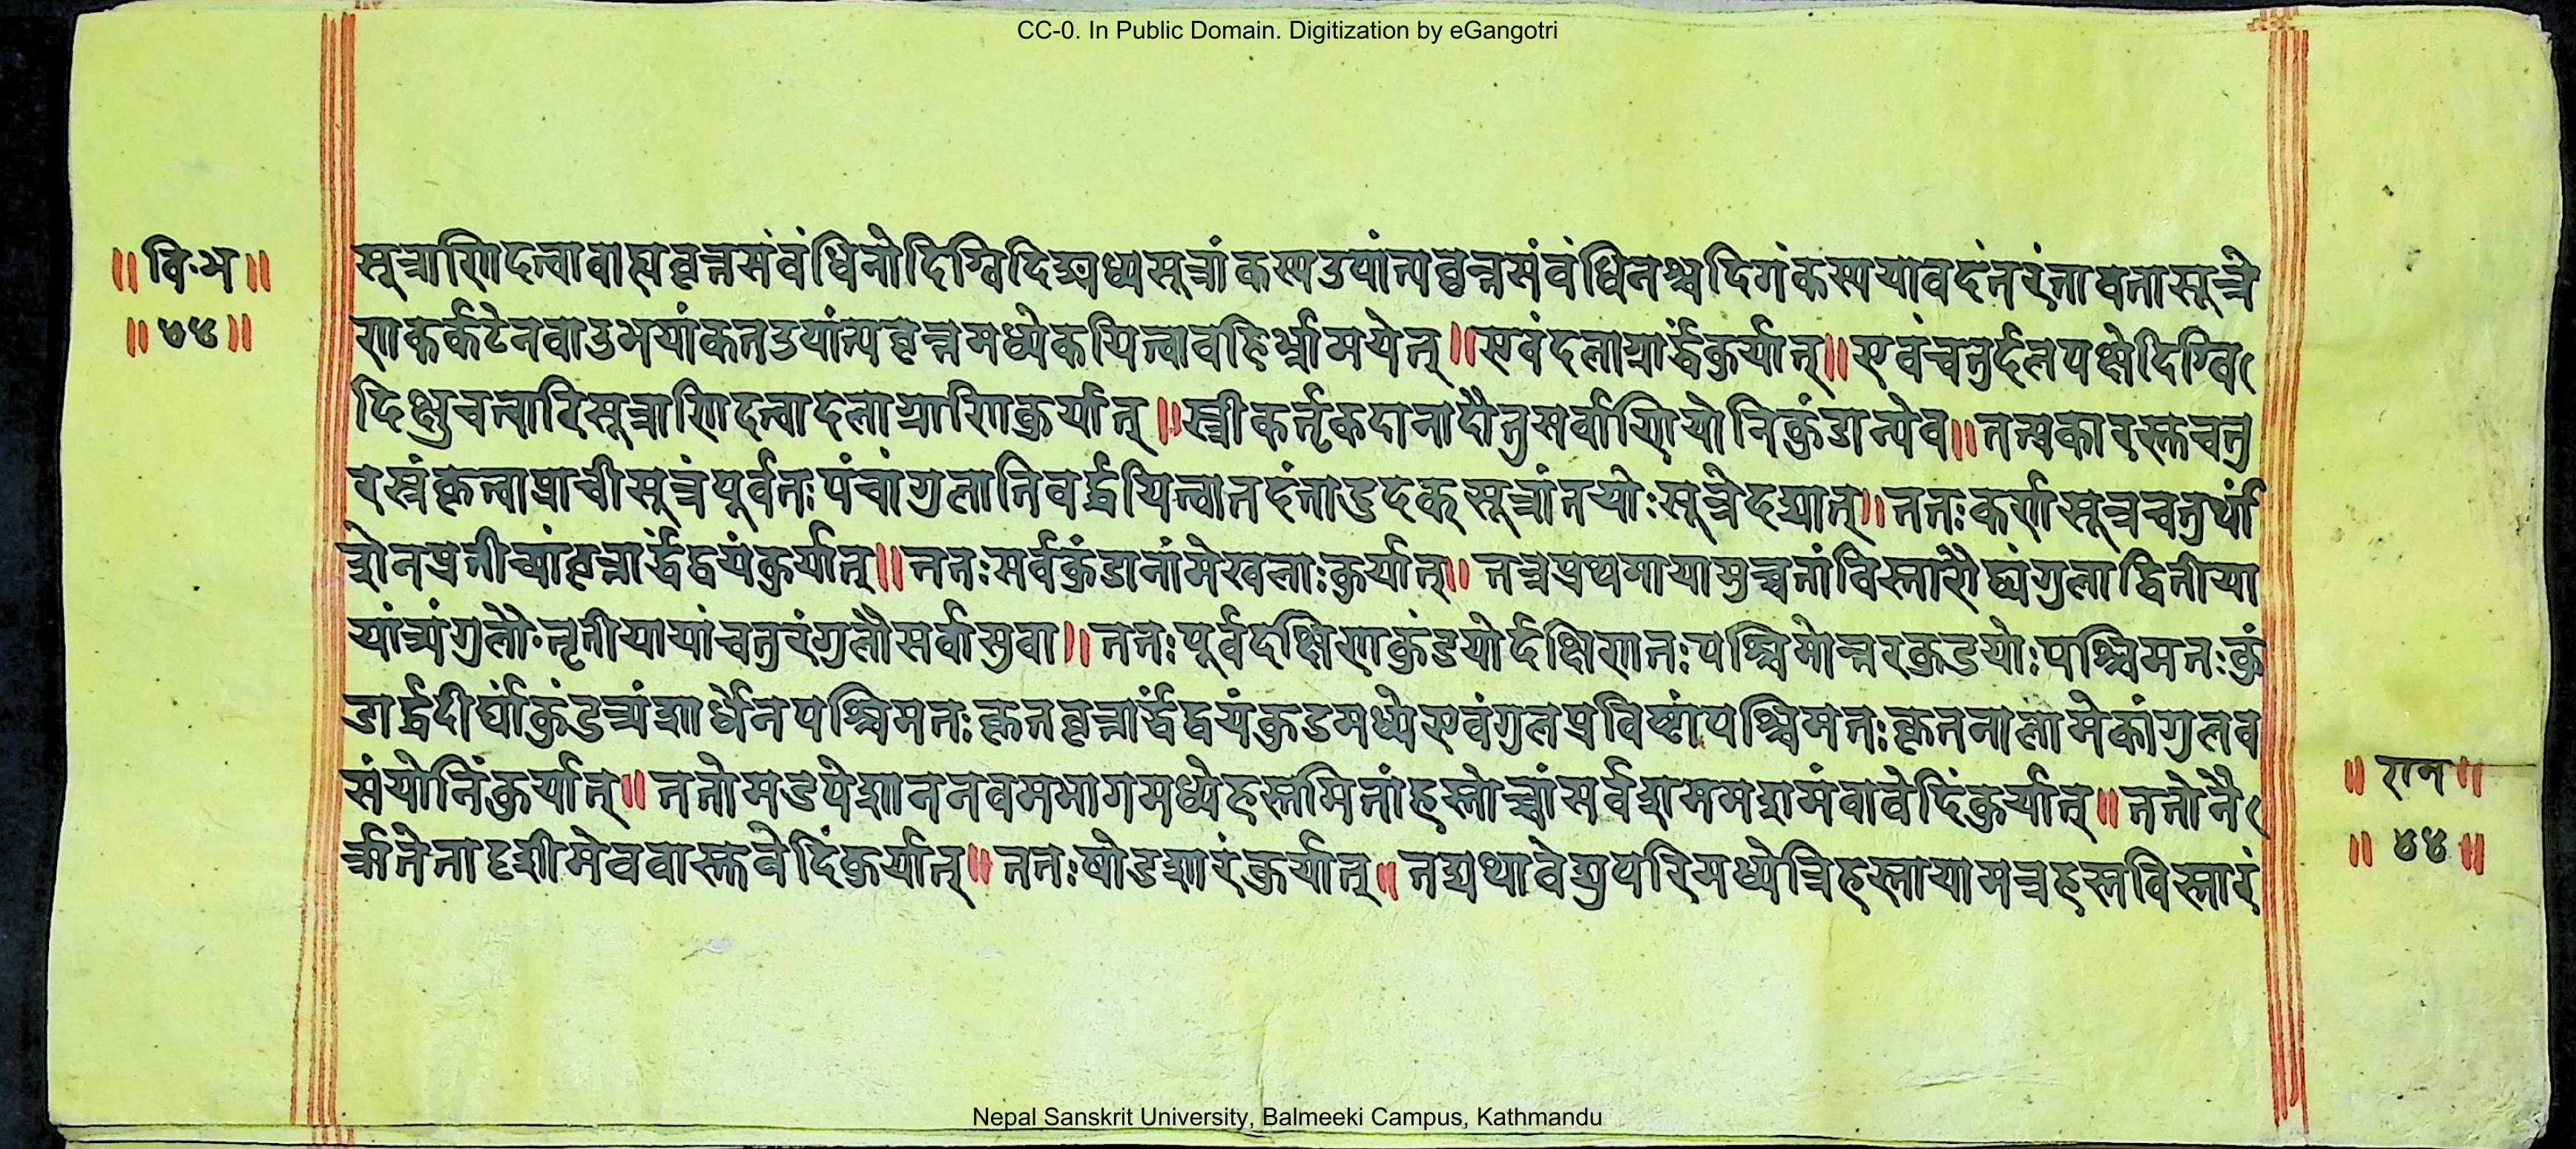 CC-0. In Public Domain. Digitization by eGangotri
॥ वि·भ ॥
॥ ५४ ॥
सूत्राणिदत्वावाह्यवृत्तसंवंधिनोदिग्विदिङ्मध्यसूत्रांकस्यउपांत्यवृत्तसंवंधिनश्चदिगंकस्ययावदंतरंतावतासूत्रे
णकर्कटेनवाउभयांकतउपांत्यवृत्तमध्येकयित्वावहिर्भ्रामयेत् ॥ एवंदलाग्रार्द्धंकुर्यात् ॥ एवंचतुर्दलपक्षेदिग्वि
दिक्षुचत्वारिसूत्राणिदत्वादलाग्राणिकुर्यात् ॥ स्त्रीकर्तृकदानादौतुसर्वाणियोनिकुंडान्येव ॥ तत्प्रकारस्तुचतु
रस्रंकृत्वाप्राचीसूत्रंपूर्वतःपंचांगुलानिवर्द्धयित्वातदंतादुदक्सूत्रांतयोःसूत्रेदद्यात् ॥ ततःकर्णसूत्रचतुर्थां
शेनप्रतीच्यांवृत्तार्द्धद्वयंकुर्यात् ॥ ततःसर्वकुंडानांमेखलाःकुर्यात् ॥ तत्रप्रथमायामुच्चतांविस्तारौद्व्यंगुलाद्वितीया
यांत्र्यंगुलौ·तृतीयायांचतुरंगुलौसर्वासुवा ॥ ततःपूर्वदक्षिणकुंडयोर्दक्षिणतःपश्चिमोत्तरकुडयोःपश्चिमतःकुं
डार्द्धदीर्घांकुंडत्र्यंशार्धेनपश्चिमतःकृतवृत्तार्द्धद्वयंकुडमध्येएवंगुलप्रविष्टांपश्चिमतःकृतनालामेकांगुलव
संयोनिंकुर्यात् ॥ ततोमडपेशाननवमभागमध्येहस्तमितांहस्तोच्चांसर्वशाममशमंवावेदिंकुर्यात् ॥ ततोनै
र्ऋतेतादृशीमेववास्तुवेदिंकुर्यात् ॥ ततःषोडशारंकुर्यात् ॥ तद्यथावेद्युपरिमध्येत्रिहस्तायामत्रहस्तविस्तारं
॥ राम ॥
॥ ५४ ॥
Nepal Sanskrit University, Balmeeki Campus, Kathmandu